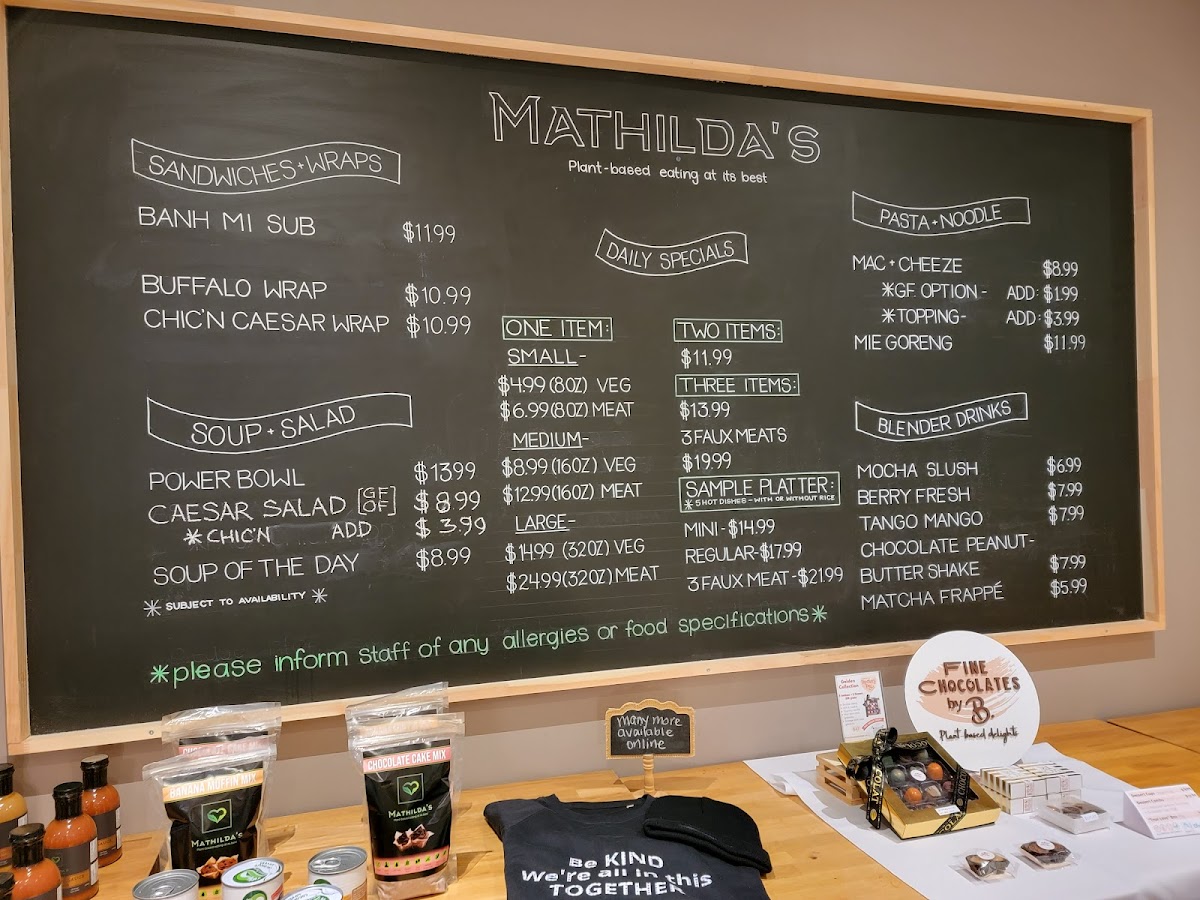 MATHILDA'S
Plant-based eating at its best
SANDWICHES + WRAPS
BANH MI SUB $1199
BUFFALO WRAP $10.99
CHIC'N CAESAR WRAP $10.99
SOUP + SALAD
POWER BOWL $1399
CAESAR SALAD [GF OF] $8.99
*CHIC'N ADD $3.99
SOUP OF THE DAY $8.99
* SUBJECT TO AVAILABILITY *
DAILY SPECIALS
ONE ITEM:
SMALL-
$4.99 (8OZ) VEG
$6.99 (8OZ) MEAT
MEDIUM-
$8.99 (16OZ) VEG
$1299 (16OZ) MEAT
LARGE-
$14.99 (32OZ) VEG
$24.99 (32OZ) MEAT
TWO ITEMS:
$11.99
THREE ITEMS:
$13.99
3 FAUX MEATS
$19.99
SAMPLE PLATTER:
* 5 HOT DISHES - WITH OR WITHOUT RICE
MINI - $14.99
REGULAR - $17.99
3 FAUX MEAT - $21.99
PASTA + NOODLE
MAC + CHEEZE $8.99
*GF OPTION - ADD: $1.99
*TOPPING - ADD: $3.99
MIE GORENG $11.99
BLENDER DRINKS
MOCHA SLUSH $6.99
BERRY FRESH $7.99
TANGO MANGO $7.99
CHOCOLATE PEANUT-
BUTTER SHAKE $7.99
MATCHA FRAPPÉ $5.99
*please inform staff of any allergies or food specifications*
CHOCOLATE CAKE MIX
BANANA MUFFIN MIX
MATHILDA'S
CHOCOLATE CAKE MIX
MATHILDA'S
many more
available
online
Be KIND
We're all in this
TOGETHER
FINE
CHOCOLATES
by B.
Plant based delights